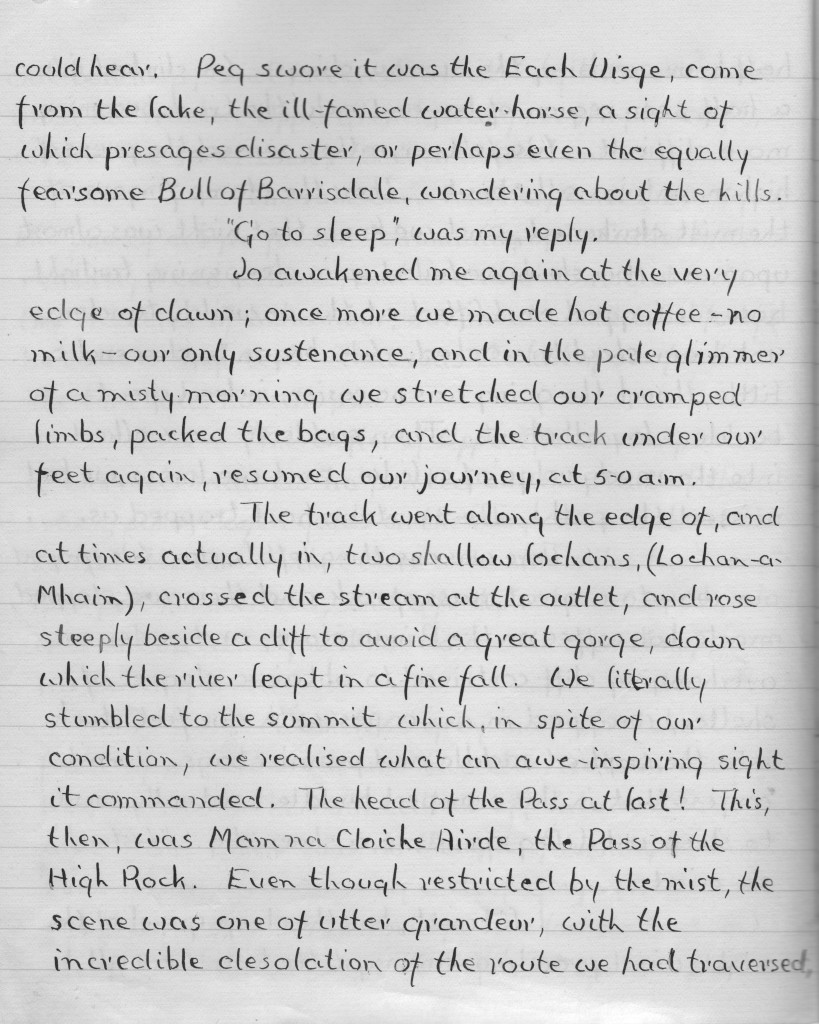 could hear. Peg swore it was the Each Uisge, come
from the lake, the ill-famed water-horse, a sight of
which presages disaster, or perhaps even the equally
fearsome Bull of Barrisdale, wandering about the hills.
"Go to sleep", was my reply.
Jo awakened me again at the very
edge of dawn; once more we made hot coffee - no
milk - our only sustenance, and in the pale glimmer
of a misty morning we stretched our cramped
limbs, packed the bags, and the track under our
feet again, resumed our journey, at 5-0 a.m.
The track went along the edge of, and
at times actually in, two shallow lochans, (Lochan-a-
Mhaim), crossed the stream at the outlet, and rose
steeply beside a cliff to avoid a great gorge, down
which the river leapt in a fine fall. We literally
stumbled to the summit which, in spite of our
condition, we realised what an awe-inspiring sight
it commanded. The head of the Pass at last! This,
then, was Mam na Cloiche Airde, the Pass of the
High Rock. Even though restricted by the mist, the
scene was one of utter grandeur, with the
incredible desolation of the route we had traversed,